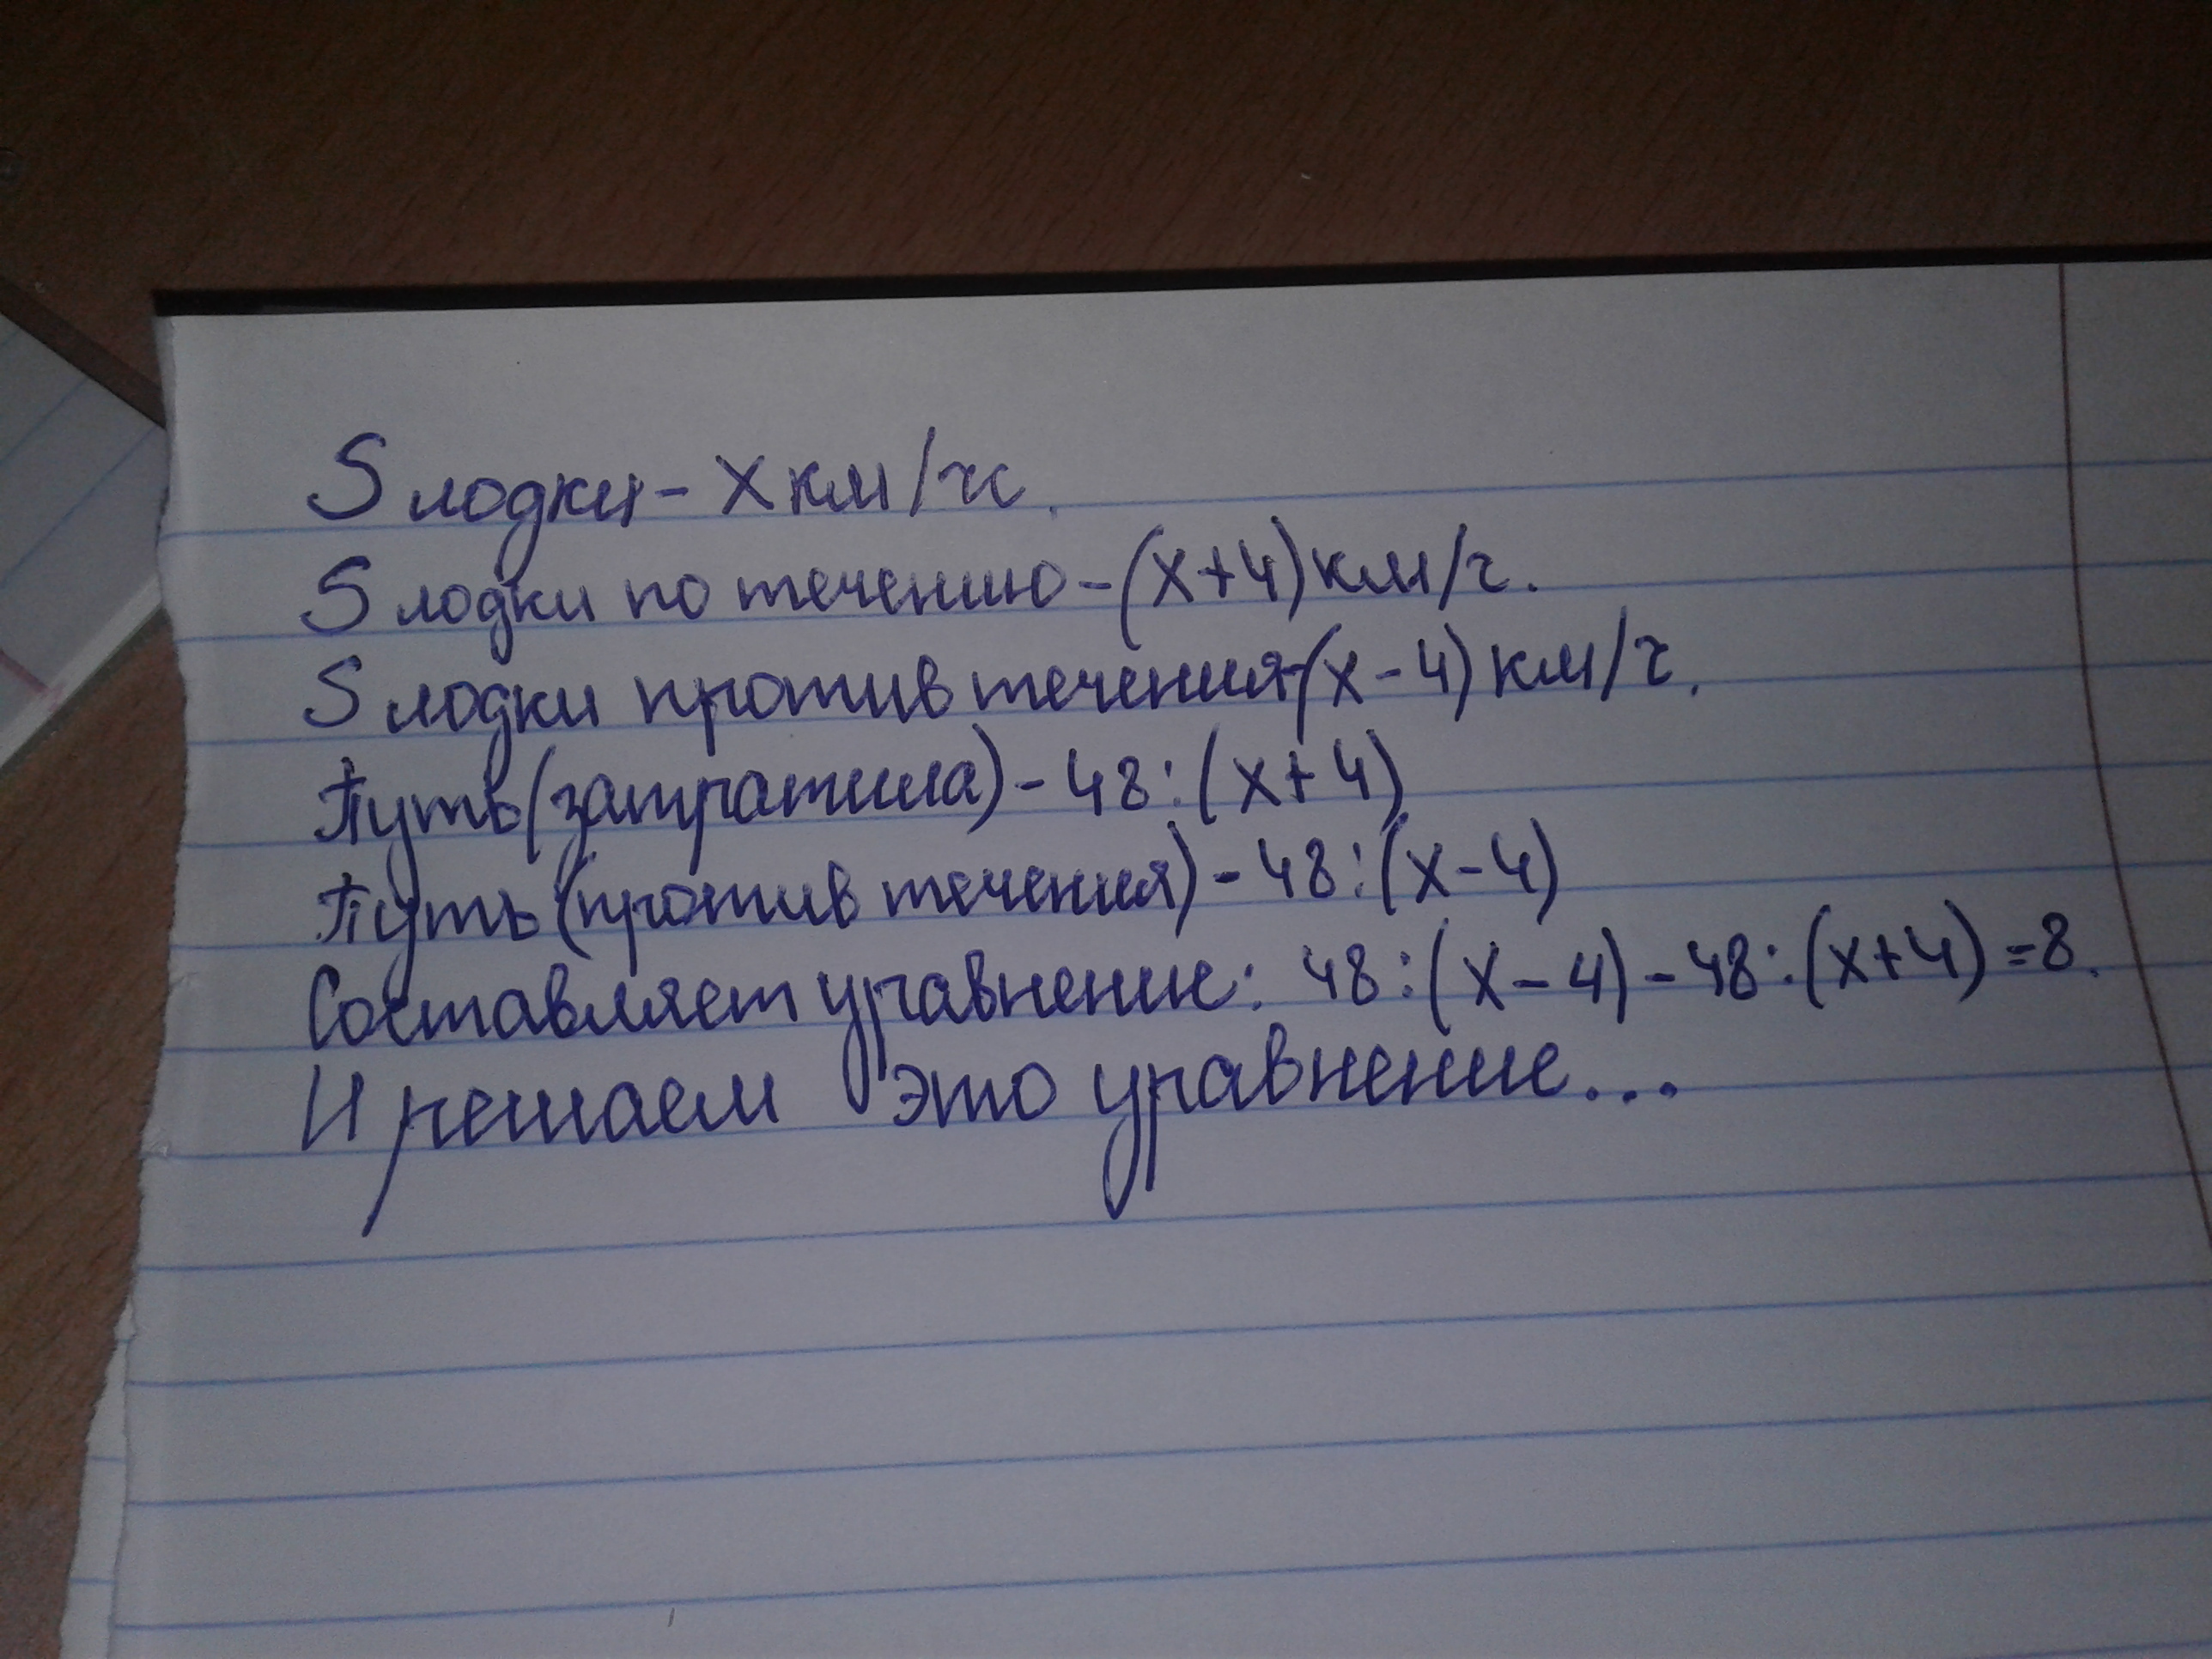 S лодки - х км/ч.
S лодки по течению - (х+4) км/ч.
S лодки против течения - (х-4) км/ч.
Путь (затратила) - 48:(х+4)
Путь (против течения) - 48:(х-4)
Составляет уравнение: 48:(х-4)-48:(х+4)=8.
И решаем это уравнение...